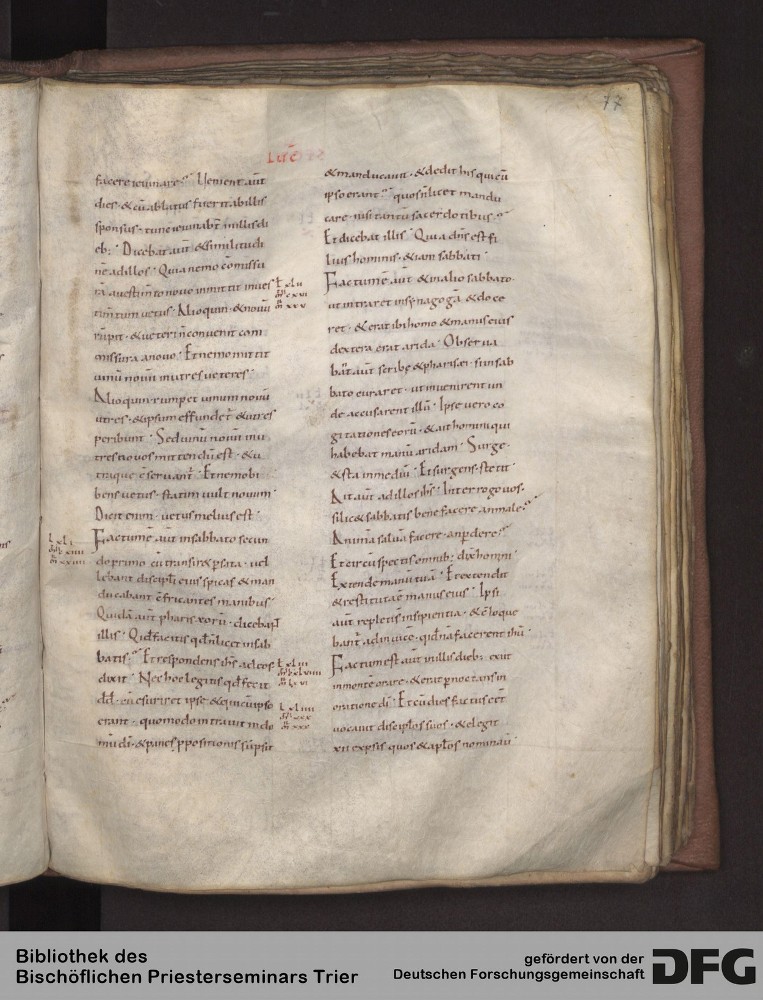 77
Luc̄
facere ieiunare? Uenient aūt
dies · & cū ablatus fuerit ab illis
sponsus · tunc ieiunabt̄ in illis di
eb; · Dicebat aūt & similitudi
nē ad illos · Quia nemo cōmissu
rā auestim̄to nouo inmittit in ues
tim̄tum uetus · Alioquin & nouū
rūpit · & ueteri n̄ conuenit com
missura a nouo · Et nemo mittit
uinū nouū in utres ueteres ·
Alioquin rumpet uinum nouū
utres · & ipsum effundet̄ & utres
peribunt · Sed uinū nouū in u
tres nouos mittendū est · & u
traque c̄seruant̄ · Et nemo bi
bens uetus · statim uult nouum ·
Dicit enim · uetus melius est ·
Factumē aūt in sabbato secun
do primo cū transir& p sata · uel
lebant discipłi eius spicas & man
ducabant c̄fricantes manibus ·
Quidā aūt pharisęorū · dicebant
illis · Qid facitis qd̄ n̄ licet in sab
batis? Et respondens ih̄s ad eos
dixit · Nec hoc legitis qd̄ fecit
dd̄ · cū esuriret ipse & qui cū ipso
erant · quomodo intrauit in do
mū dī · & panes ppositionis sūpsit
& manducauit · & dedit his qui cū
ipso erant? quos n̄ licet mandu
care · nisi tantū sacerdotibus?
Et dicebat illis · Quia dn̄s est fi
lius hominis · & iam sabbati ·
Factumē aūt · & in alio sabbato ·
ut intraret in synagogā · & doce
ret · & erat ibi homo & manus eius
dextera erat arida · Obserua
bāt aūt scribę & pharisei · si in sab
bato curaret · ut inuenirent un
de accusarent illū · Ipse uero co
gitationes eorū · & ait homini qui
habebat manū aridam · Surge ·
& sta in mediū · Et surgens stetit ·
Ait aūt ad illos ih̄s · Interrogo uos ·
si lic& sabbatis bene facere an male?
Animā saluā facere · an pdere?
Et circūspectis omnib; dix̄ homini
Extende manū tuā · Et extendit
& restituta ē manus eius · Ipsi
aūt repleti s̄ insipientia · & c̄loque
bant̄ ad inuicē · qid nā facerent ih̄u ·
Factum est aūt in illis dieb; · exiit
in monte orare · & erat pnoctans in
oratione dī · Et cū dies factus eēt
uocauit discipłos suos · & elegit
xii ex ipsis quos & apłos nominauit ·
Bibliothek des
Bischöflichen Priesterseminars Trier
gefördert von der
Deutschen Forschungsgemeinschaft
DFG